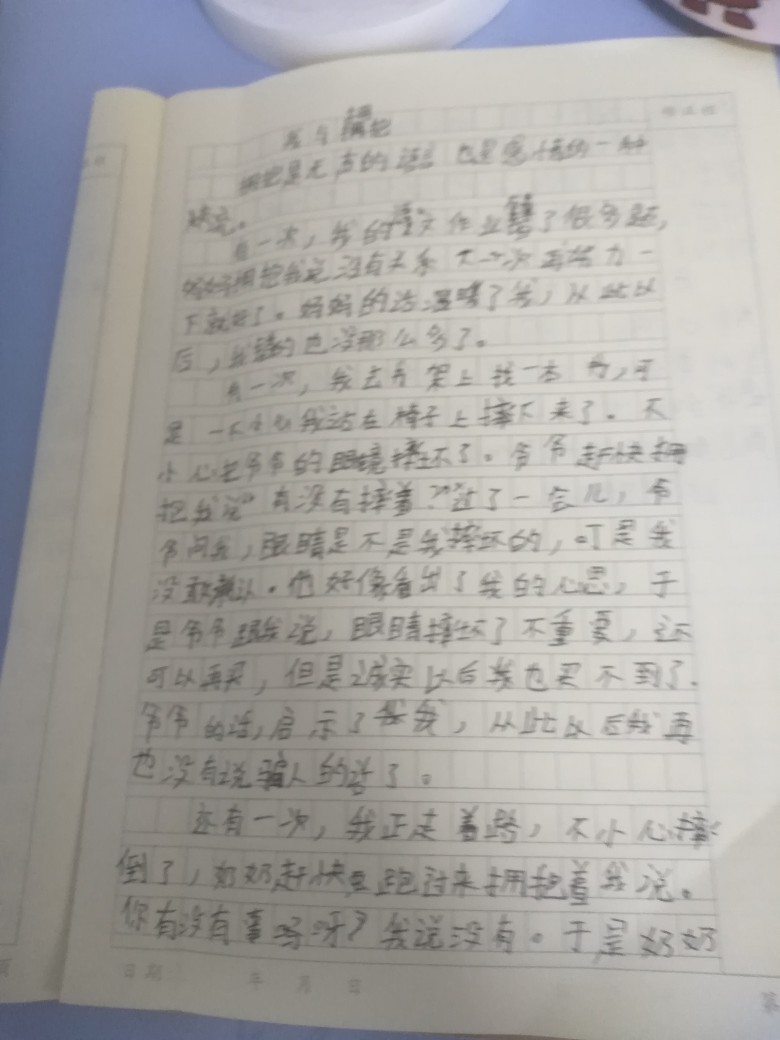 我与拥把
拥把是无声的语言 也是感情的一种
有一次，我的语文作业错了很多题，
妈妈拥把我说没有关系 下一次再努力一
下就好了。妈妈的话温暖了我，从此以
后，我错的也没那么多了。
有一次，我去书架上找一本书，可
是一不小心我站在椅子上摔下来了。不
小心把爷爷的眼镜摔坏了。爷爷赶快拥
把我说“有没有摔着？”过了一会儿，爷
爷问我，眼睛是不是我摔坏的，可是我
没敢承认。他好像看出了我的心思，于
是爷爷跟我说，眼睛摔坏了不重要，还
可以再买，但是诚实以后我也买不到了.
爷爷的话，启示了我，从此以后我再
也没有说骗人的话了。
还有一次，我正走着路，不小心摔
倒了，奶奶赶快跑过来拥把着我说。
你有没有事吗呀？我说没有。于是奶奶
日期 年 月 日
第